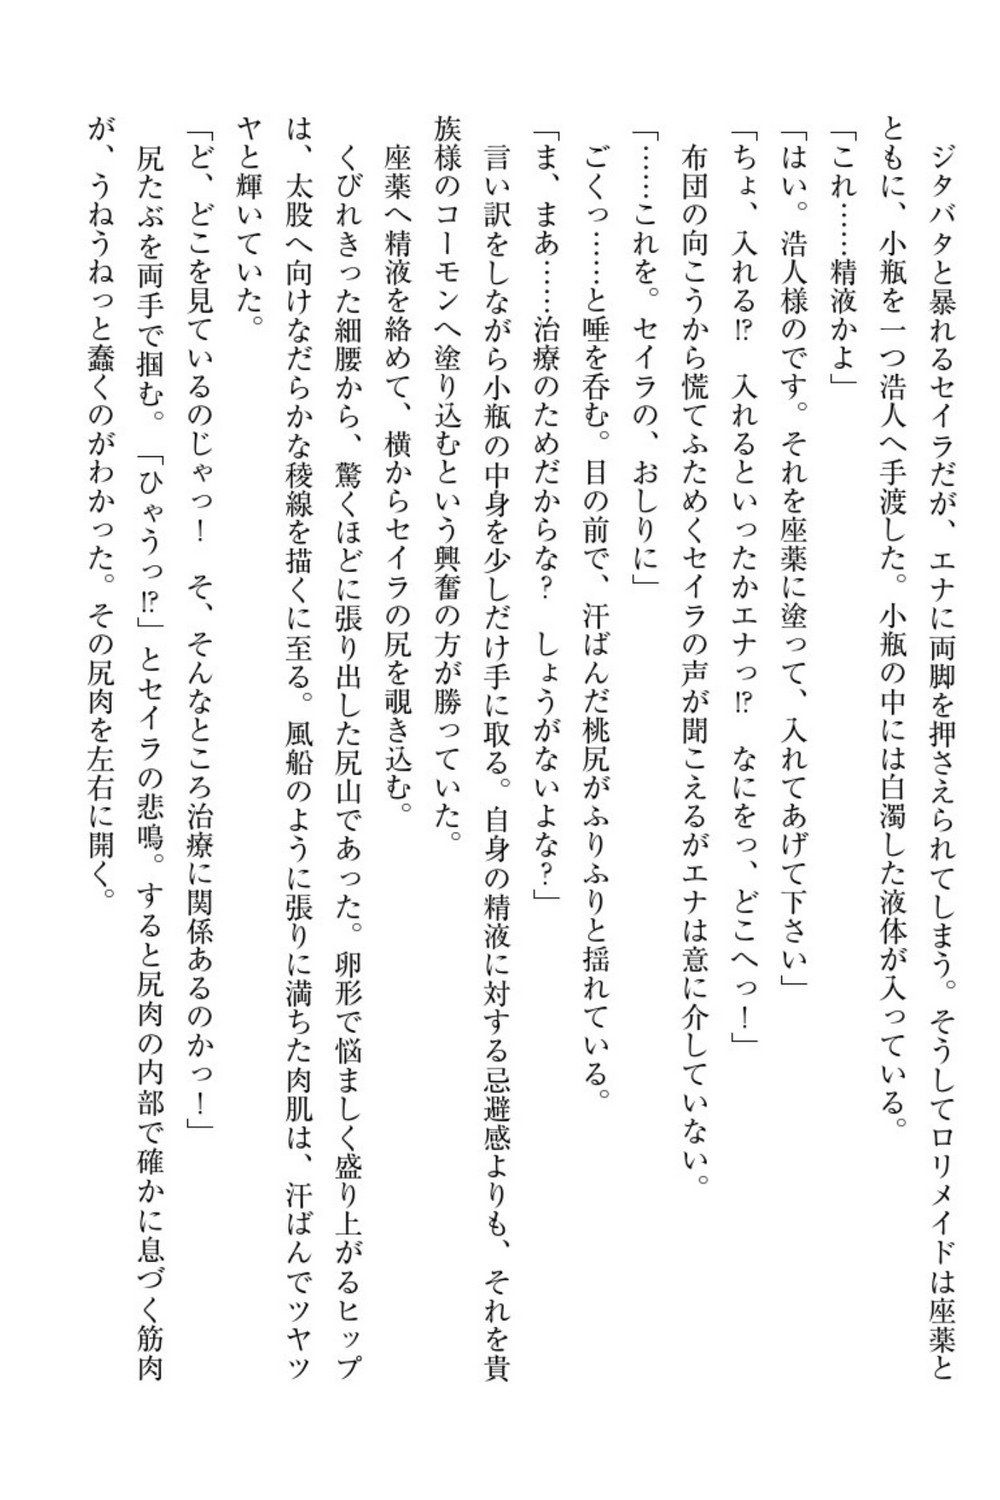 ジタバタと暴れるセイラだが、エナに両脚を押さえられてしまう。そうしてロリメイドは座薬と
ともに、小瓶を一つ浩人へ手渡した。小瓶の中には白濁した液体が入っている。
「これ……精液かよ」
「はい。浩人様のです。それを座薬に塗って、入れてあげて下さい」
「ちょ、入れる⁉　入れるといったかエナっ⁉　なにをっ、どこへっ！」
布団の向こうから慌てふためくセイラの声が聞こえるがエナは意に介していない。
「……これを。セイラの、おしりに」
ごくっ……と唾を呑む。目の前で、汗ばんだ桃尻がふりふりと揺れている。
「ま、まあ……治療のためだからな？　しょうがないよな？」
言い訳をしながら小瓶の中身を少しだけ手に取る。自身の精液に対する忌避感よりも、それを貴
族様のコーモンへ塗り込むという興奮の方が勝っていた。
座薬へ精液を絡めて、横からセイラの尻を覗き込む。
くびれきった細腰から、驚くほどに張り出した尻山であった。卵形で悩ましく盛り上がるヒップ
は、太股へ向けなだらかな稜線を描くに至る。風船のように張りに満ちた肉肌は、汗ばんでツヤツ
ヤと輝いていた。
「ど、どこを見ているのじゃっ！　そ、そんなところ治療に関係あるのかっ！」
尻たぶを両手で掴む。「ひゃうっ⁉」とセイラの悲鳴。すると尻肉の内部で確かに息づく筋肉
が、うねうねっと蠢くのがわかった。その尻肉を左右に開く。